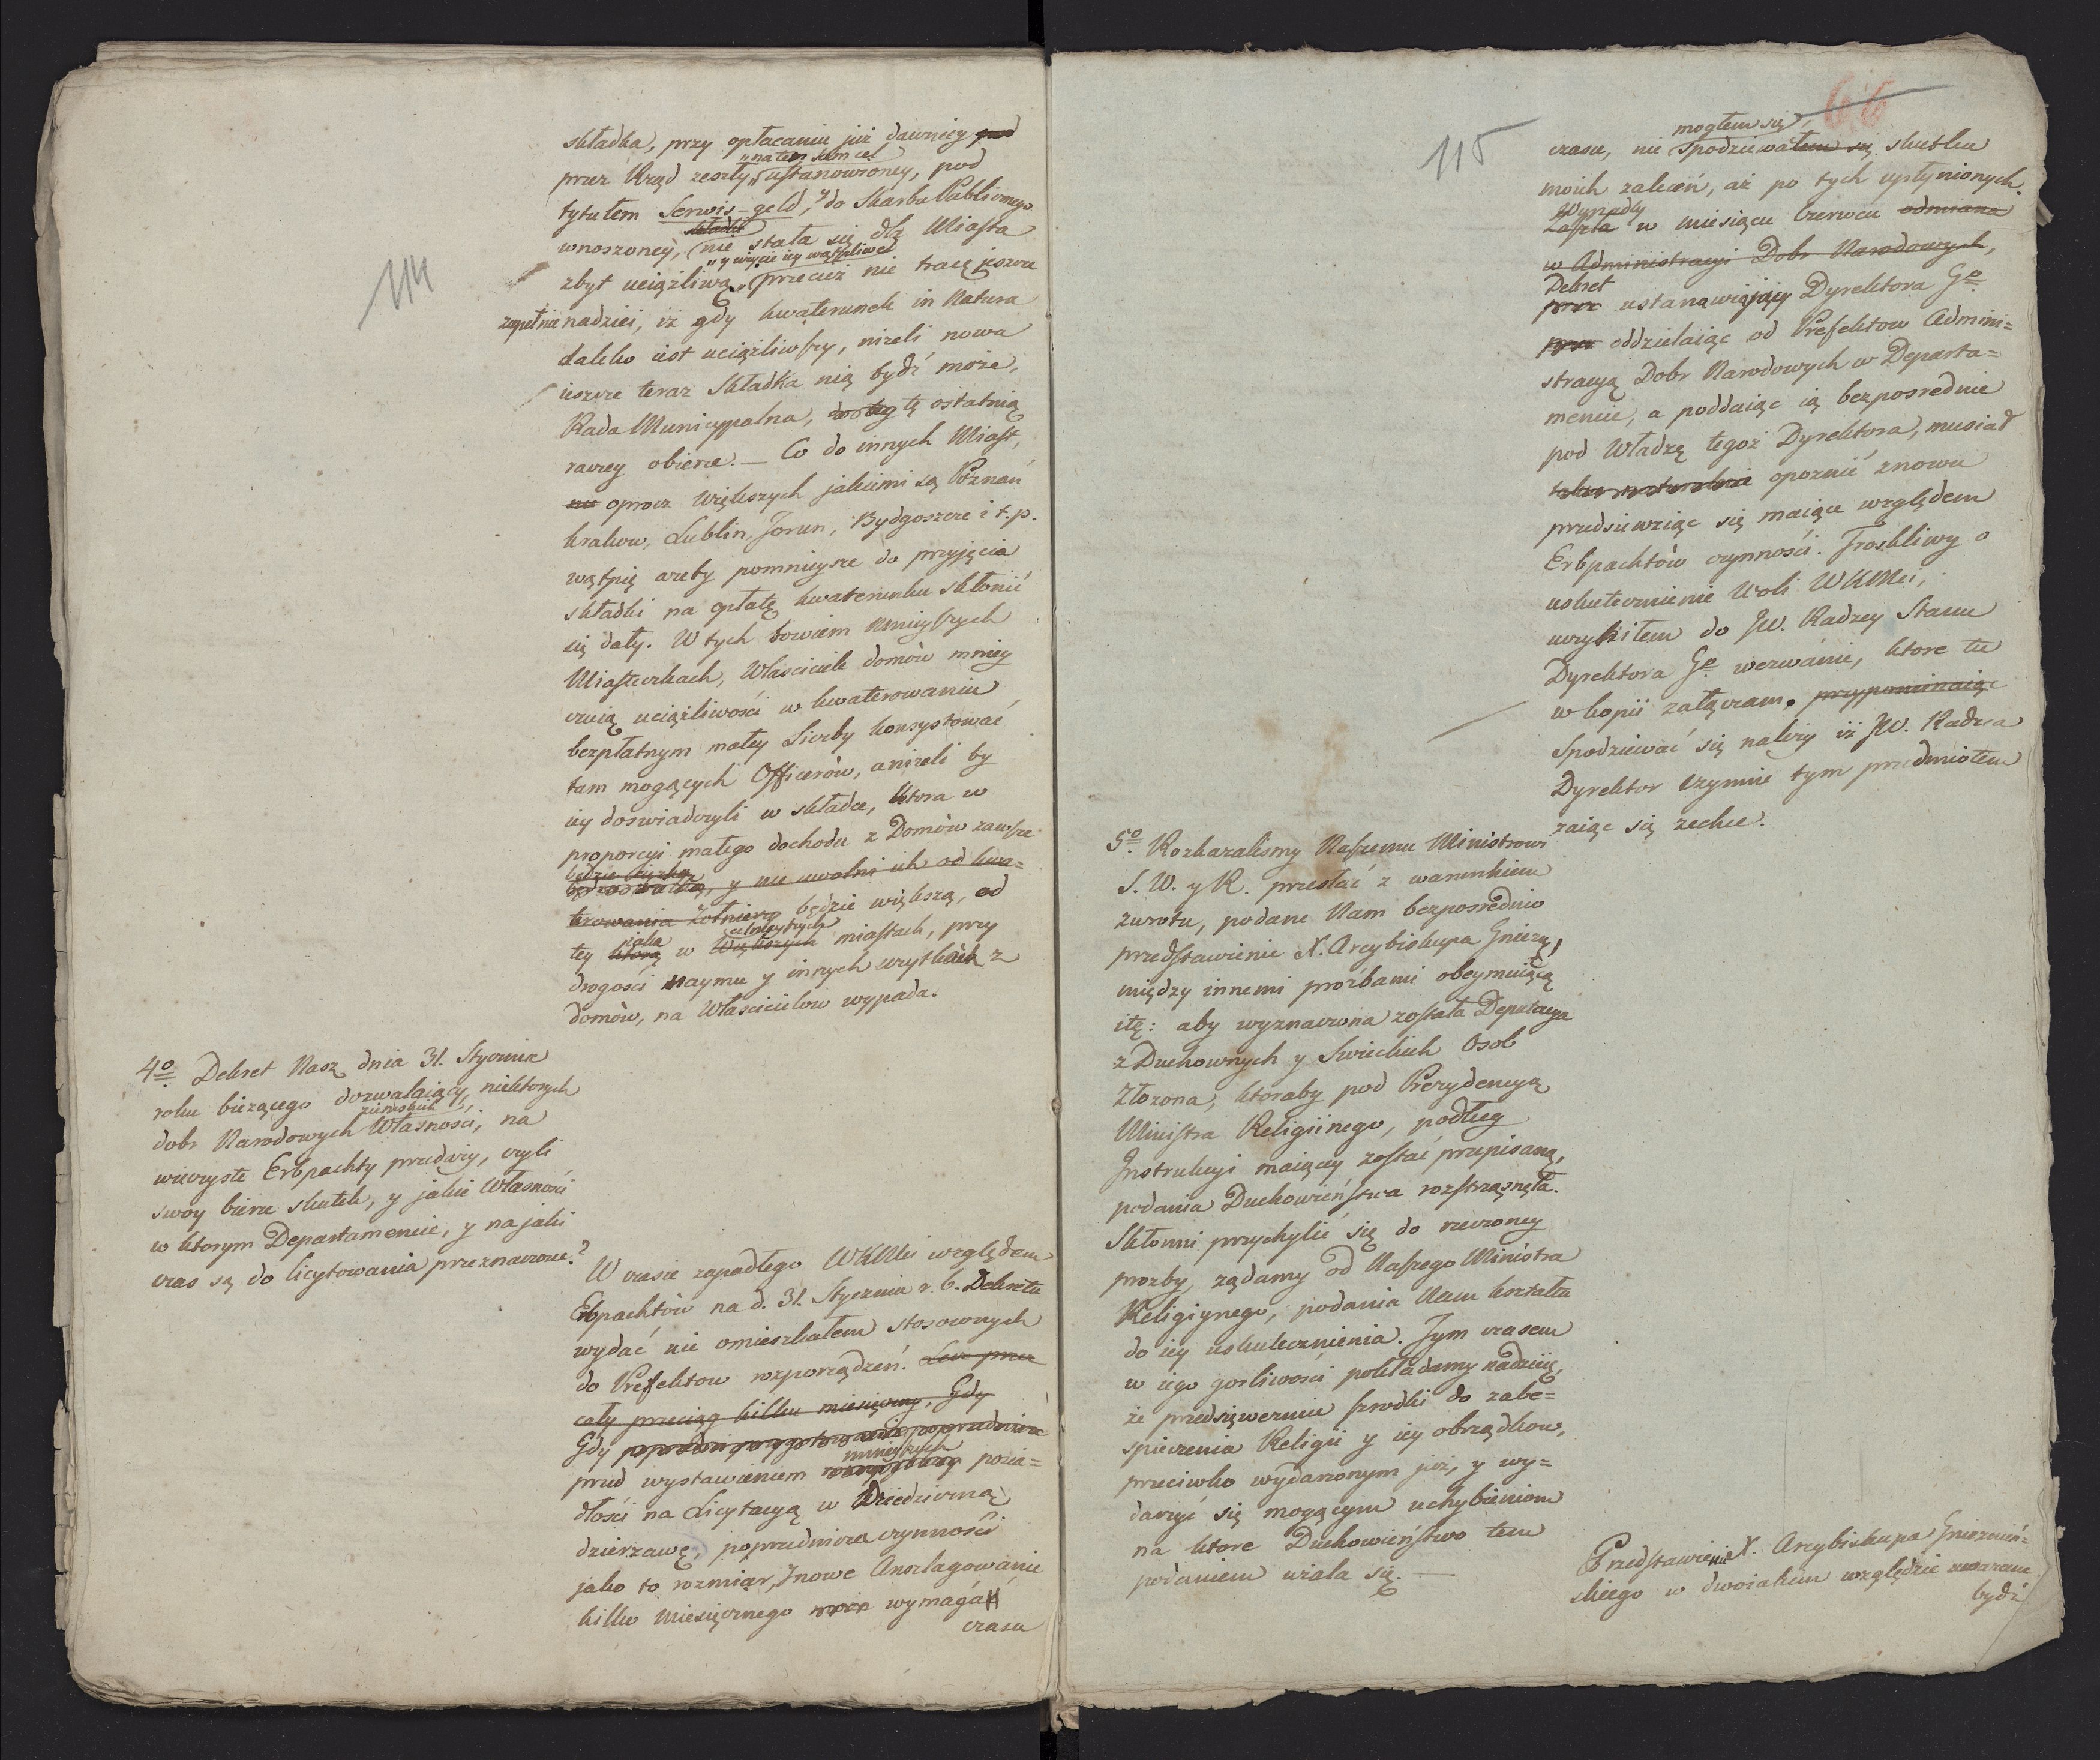 114
składka, przy opłacaniu już dawniey pod
przez Rząd zeszły „na ten sam cel ustanowioney, pod
tytułem Serwis-geld, y do Skarbu Publicznego
wnoszoney, składka nie stała się dla Miasta
zbyt uciążliwą „y wzięcie iey wątpliwe przecież nie tracę jeszcze
zupełnie nadziei, iż gdy kwaterunek in Natura
daleko iest uciążliwszy, niżeli nowa
ieszcze teraz Składka nią bydź może,
Rada Municypalna, tę ostatnią
raczey obierze. — Co do innych Miast,
oprócz większych jakiemi są Poznań
Krakow, Lublin, Torun, Bydgoszcz i t. p.
wątpię ażeby pomnieysze do przyjęcia
składki na opłatę kwaterunku skłonić
się dały. W tych bowiem mnieyszych
Miasteczkach, Właściciele domów mniey
czuią uciążliwości w kwaterowaniu
bezpłatnym małey Liczby konsystować
tam mogących Officerów, aniżeli by
iey doświadczyli w składce, ktora w
proporcyi małego dochodu z Domów zawsze
będzie ciężką
y nie uwolni ich od kwa=
terowania Żołnierzy będzie większą, od
tey ktorą jaka w Większych celnieyszych miastach, przy
drogości naymu y innych wszystkich z
domów, na Właścicielow wypada.
4o Dekret Nasz dnia 31. Stycznia
roku bieżącego dozwalaiący, niektorych
dobr Narodowych ziemskich Własności, na
wieczyste Erbpachty przedaży, czyli
swoy bierze skutek, y jakie Własności
w ktorym Departamencie, y na jaki
czas są do licytowania przeznaczone?
W czasie zapadłego WKMci względem
Erbpachtów na d. 31. Stycznia r. b. Dekretu
wydać nie omieszkałem stosownych
do Prefektow rozporządzeń. Lecz przez
cały przeciąg kilku miesięczny, Gdy
Gdy
przed wystawieniem mnieyszych posia=
dłości na Licytacyą w Dziedziczną
dzierżawę, poprzednicze czynności
jako to rozmiar, Inowe Anszlagowanie
kilku miesięcznego wymagał
czasu
115
66
czasu, nie mogłem się spodziewałem się skutku
moich zaleceń, aż po tych upłynionych.
Wypadły
Zaszła w miesiącu Czerwcu odmiana
w Administracyi Dobr Narodowych,
Dekret
przez ustanawiający Dyrektora Go
przez oddzielaiąc od Prefektow Admini=
stracyą Dobr Narodowych w Departa=
mencie, a poddaiąc ią bezpośrednie
pod Władzę tegoż Dyrektora, musiał
opoznić znowu
przedsiewziąc się maiące względem
Erbpachtów czynności. Troskliwy o
uskutecznienie Woli WKMci,
uczyniłem do JW. Radzcy Stanu
Dyrektora Go wezwanie, ktore tu
w kopii załączam. przypominaiąc
Spodziewać się należy iż JW. Radzca
Dyrektor czynnie tym przedmiotem
zaiąc się zechce.
5o Rozkazalismy Naszemu Ministrowi
S. W. y R. przesłać z warunkiem
zwrotu, podane Nam bezpośrednio
przedstawienie X. Arcybiskupa Gniezn,
między innemi proźbami obeymuiącą
itę: aby wyznaczona została Deputacya
z Duchownych y Swieckich Osob
Złożona, ktoraby pod Prezydencyą
Ministra Religiinego, podług
Instrukcyi maiącey zostać przepisaną,
podania Duchowieństwa rozstrząsnęła.
Skłonni przychylić się do rzeczoney
prozby, żądamy od Naszego Ministra
Religiynego, podania Nam kształtu
do iey uskutecznienia. Tym czasem
w iego gorliwości pokładamy nadzieię,
że przedsięweźmie srzodki do zabe=
spieczenia Religii y iey obrządkow,
przeciwko wydarzonym już, y wy=
darzyć się mogącym uchybieniom
na ktore Duchowieństwo tem
podaniem użala się. —
Przedstawienie X. Arcybiskupa Gnieznień=
skiego w dwoiakim względzie uważane
bydź